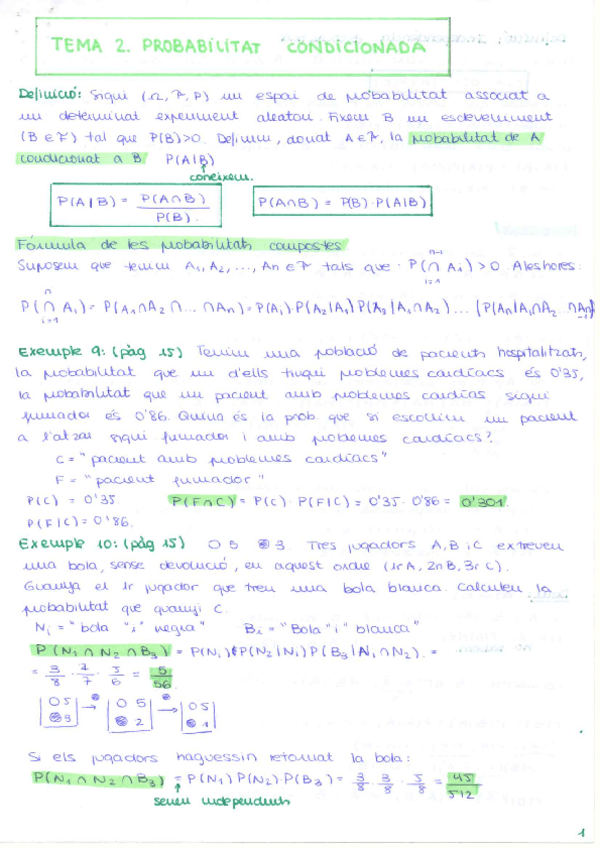 TEMA 2. PROBABILITAT CONDICIONADA
Definició: Sigui (Ω, F, P) un espai de probabilitat associat a
un determinat experiment aleatori. Fixem B un esdeveniment
(B ∈ F) tal que P(B)>0. Definim, donat A ∈ F, la probabilitat de A
condicionat a B P(A|B)
coneixem.
P(A|B) = P(A∩B) / P(B).
P(A∩B) = P(B)·P(A|B)
Fórmula de les probabilitats compostes
Suposem que tenim A₁, A₂, ..., An ∈ F tals que P(∩ⁿ⁻¹ᵢ₌₁ Ai) > 0. Aleshores:
P(∩ⁿᵢ₌₁ Ai) = P(A₁∩A₂∩...∩An) = P(A₁)·P(A₂|A₁)P(A₃|A₁∩A₂)...(P(An|A₁∩A₂...∩An₋₁)
Exemple 9: (pàg 15) Tenim una població de pacients hospitalitzats,
la probabilitat que un d'ells tingui problemes cardíacs és 0'35,
la probabilitat que un pacient amb problemes cardías sigui
fumador és 0'86. Quina és la prob. que si escollim un pacient
a l'atzar sigui fumador i amb problemes cardíacs?
C = "pacient amb problemes cardíacs"
F = "pacient fumador"
P(C) = 0'35. P(F∩C) = P(C)·P(F|C) = 0'35·0'86 = 0'301.
P(F|C) = 0'86.
Exemple 10: (pàg 15) O 5 3. Tres jugadors A, B i C extreuen
una bola, sense devolució, en aquest ordre (1r A, 2n B, 3r C).
Guanya el 1r jugador que treu una bola blanca. Calculeu la
probabilitat que guanyi C.
Ni = "bola "i" negra" Bi = "Bola "i" blanca"
P(N₁∩N₂∩B₃) = P(N₁)P(N₂|N₁)P(B₃|N₁∩N₂). =
= 3/8 · 2/7 · 5/6 = 5/56.
O 5 → O 5 → O 5
3 2 1
Si els jugadors haguessin retornat la bola:
P(N₁∩N₂∩B₃) = P(N₁)P(N₂)·P(B₃) = 3/8 · 3/8 · 5/8 = 45/512
serien independents
1